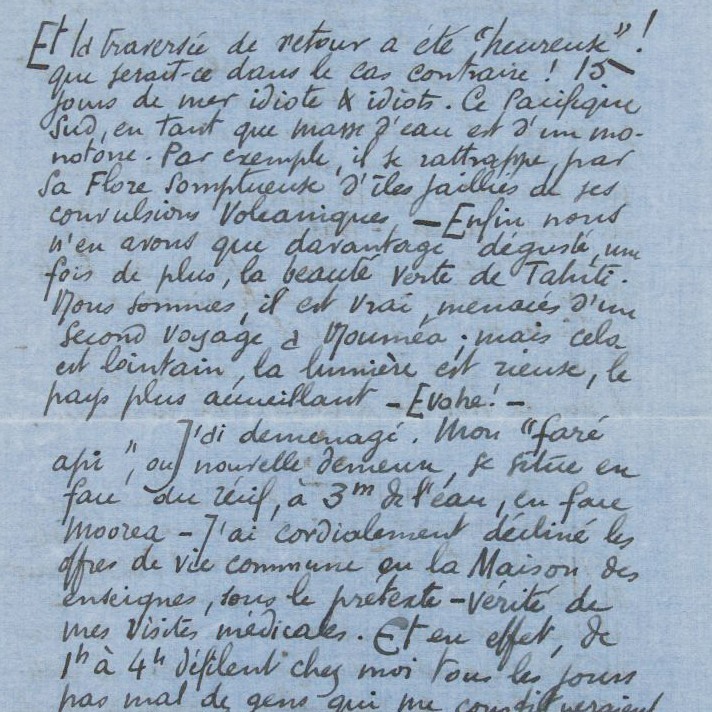 Et la traversée de retour a été "heureuse"!
que serait-ce dans le cas contraire! 15
jours de mer idiote & idiots. Ce Pacifique
Sud, en tant que masse d'eau est d'un mo-
notone. Par exemple, il se rattrappe, par
sa Flore somptueuse d'îles jaillies de ses
convulsions volcaniques — Enfin nous
n'en avons que davantage dégusté, une
fois de plus, la beauté verte de Tahiti.
Nous sommes, il est vrai, menacés d'un
second voyage à Nouméa; mais cela
est lointain, la lumière est rieuse, le
pays plus accueillant — Evohe! —
J'ai demenagé. Mon "faré
api", ou nouvelle demeure, se situe en
face du récif, à 3m de l'eau, en face
Moorea — J'ai cordialement décliné les
offres de vie commune en la Maison des
enseignes, sous le prétexte-vérité de
mes visites médicales. Et en effet, de
1h à 4h défilent chez moi tous les jours
pas mal de gens qui me constitueraient